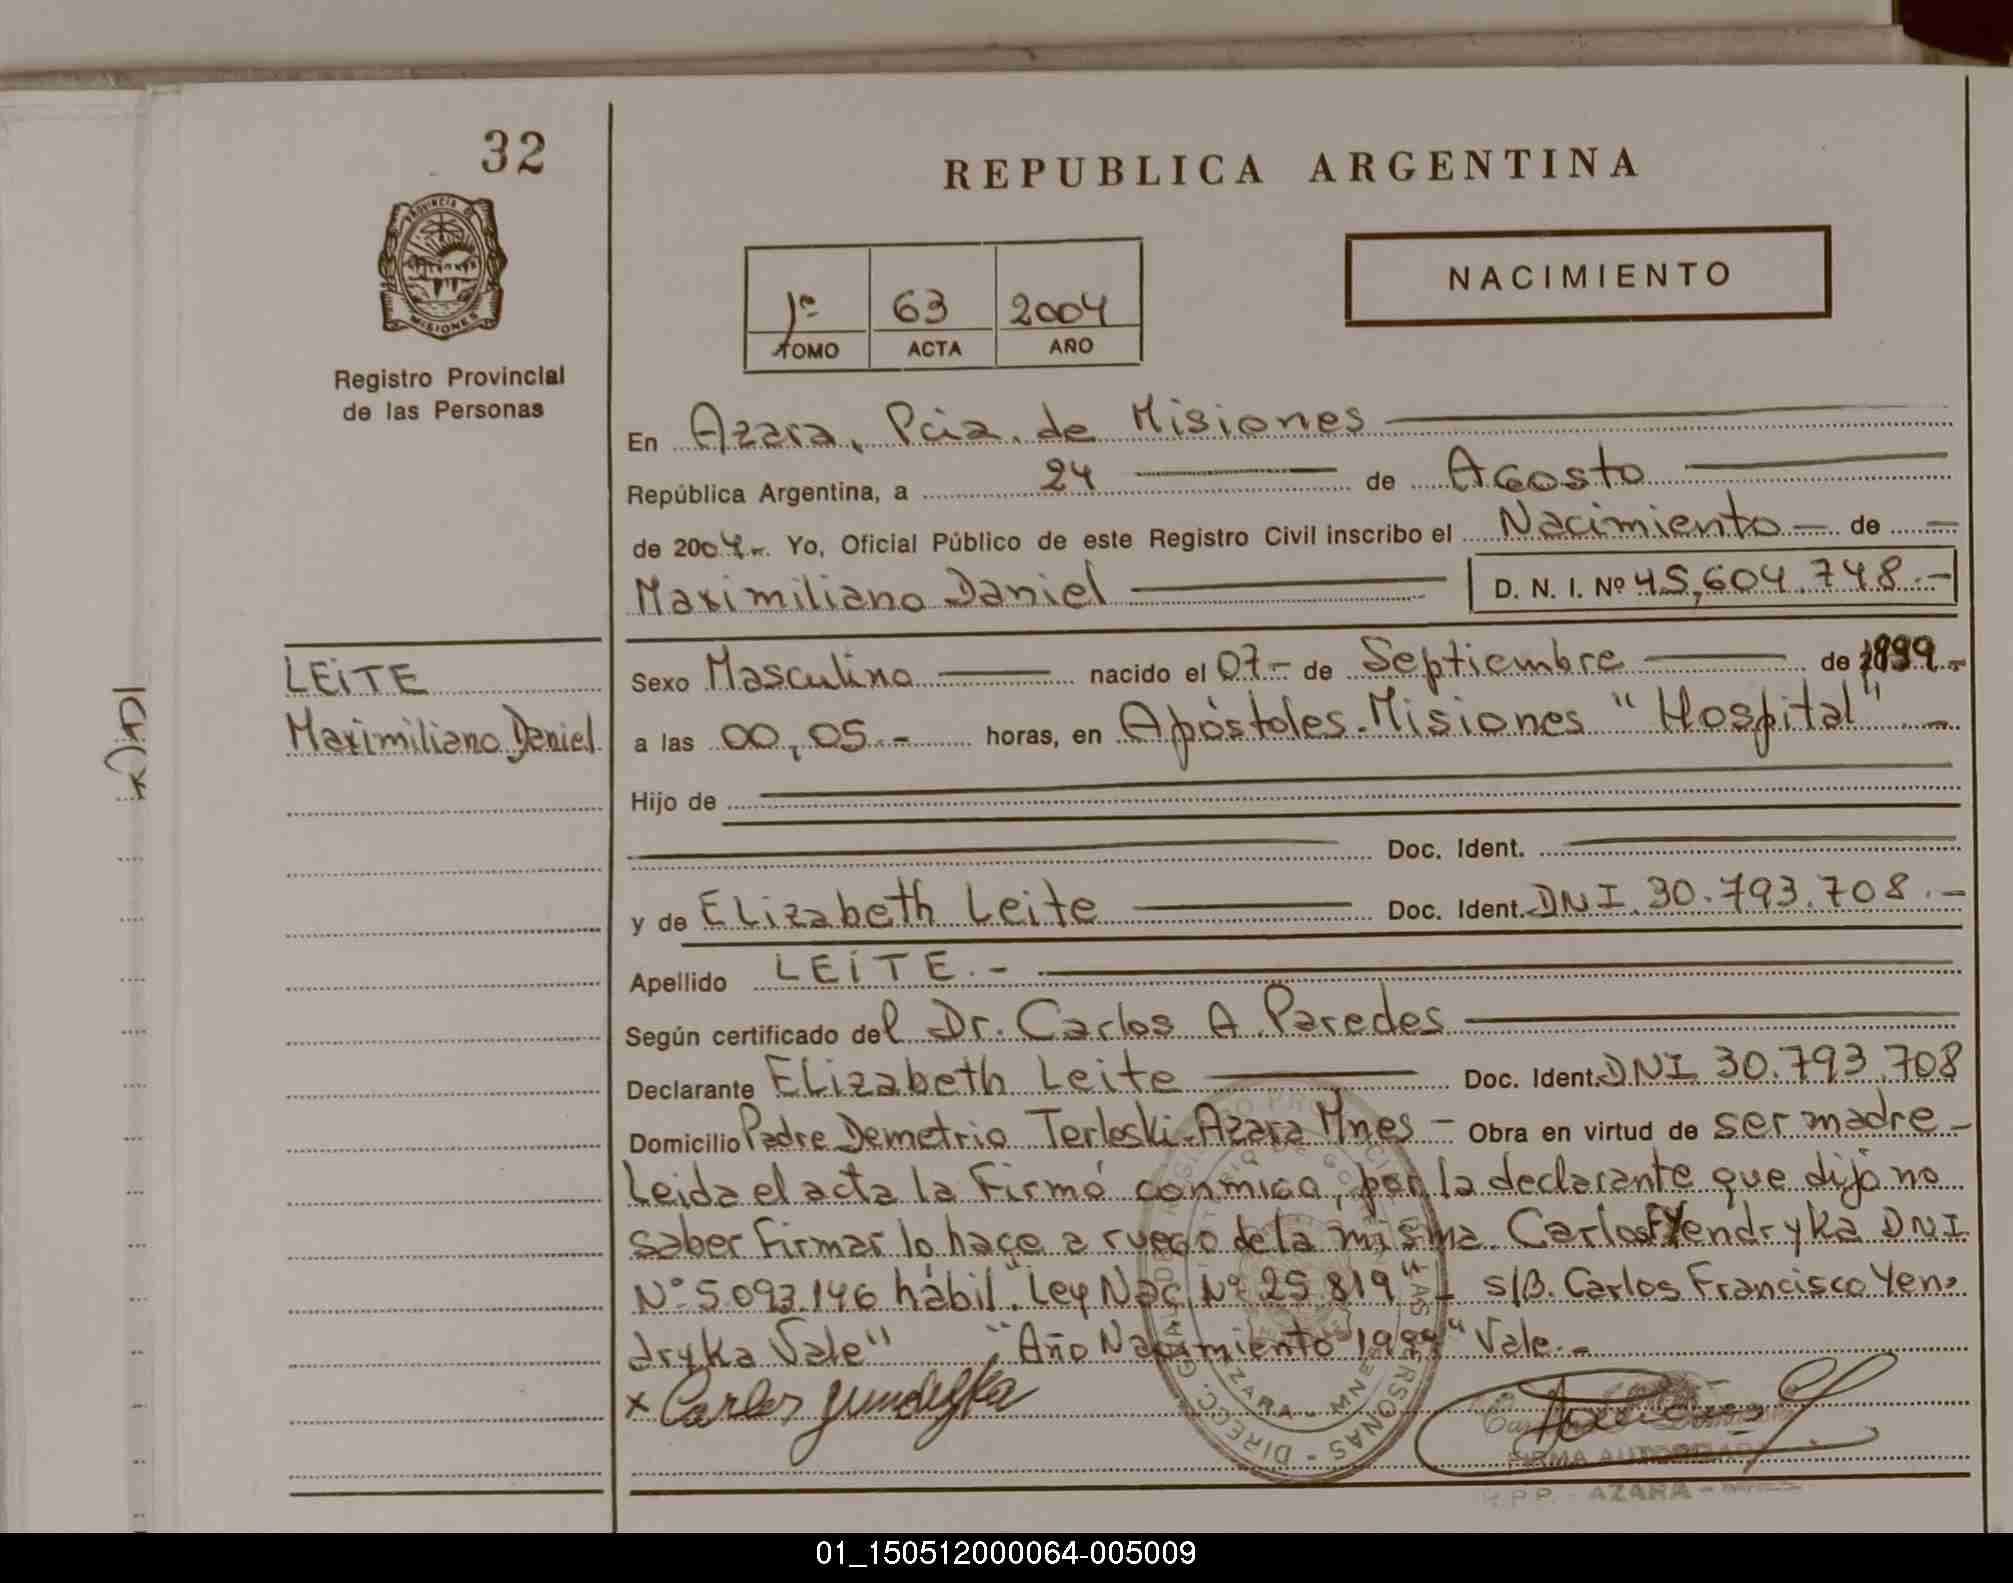 32
REPUBLICA ARGENTINA
PROVINCIA DE
MISIONES
Registro Provincial
de las Personas
NACIMIENTO
1º 63 2004
TOMO ACTA AÑO
En Azara, Pcia. de Misiones
República Argentina, a 24 de Agosto
de 2004.- Yo, Oficial Público de este Registro Civil inscribo el Nacimiento - de -
Maximiliano Daniel D. N. I. Nº 45,604.748.-
LEiTE
Maximiliano Daniel
Sexo Masculino nacido el 07- de Septiembre de 1999.-
a las 00,05.- horas, en Apóstoles. Misiones "Hospital" -
Hijo de
Doc. Ident.
y de ELizabeth Leite Doc. Ident. DNI. 30.793.708.-
Apellido LEiTE.-
Según certificado del Dr. Carlos A Paredes
Declarante ELizabeth Leite Doc. Ident. DNI 30.793.708
Domicilio Padre Demetrio Terleski-Azara Mnes - Obra en virtud de ser madre-
Leida el acta la Firmó conmigo, por la declarante que dijo no
saber Firmar lo hace a ruego de la misma Carlos F Yendryka DNI
Nº 5.093.146 hábil. "Ley Nac Nº 25.819" - s/B. Carlos Francisco Yen-
dryka Vale" "Año Nacimiento 1999" Vale.-
x Carlos Yendryka
FIRMA AUTORIZADA
R.P.P. - AZARA - MNES
01_150512000064-005009